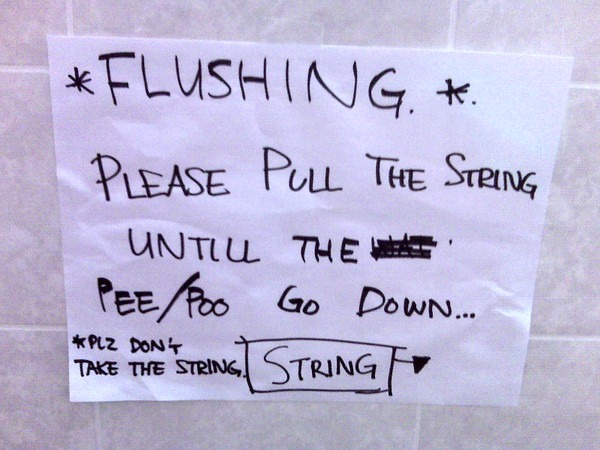 *FLUSHING. *.
PLEASE PULL THE STRING
UNTILL THE
PEE/POO GO DOWN...
*PLZ DON'T
TAKE THE STRING.
STRING